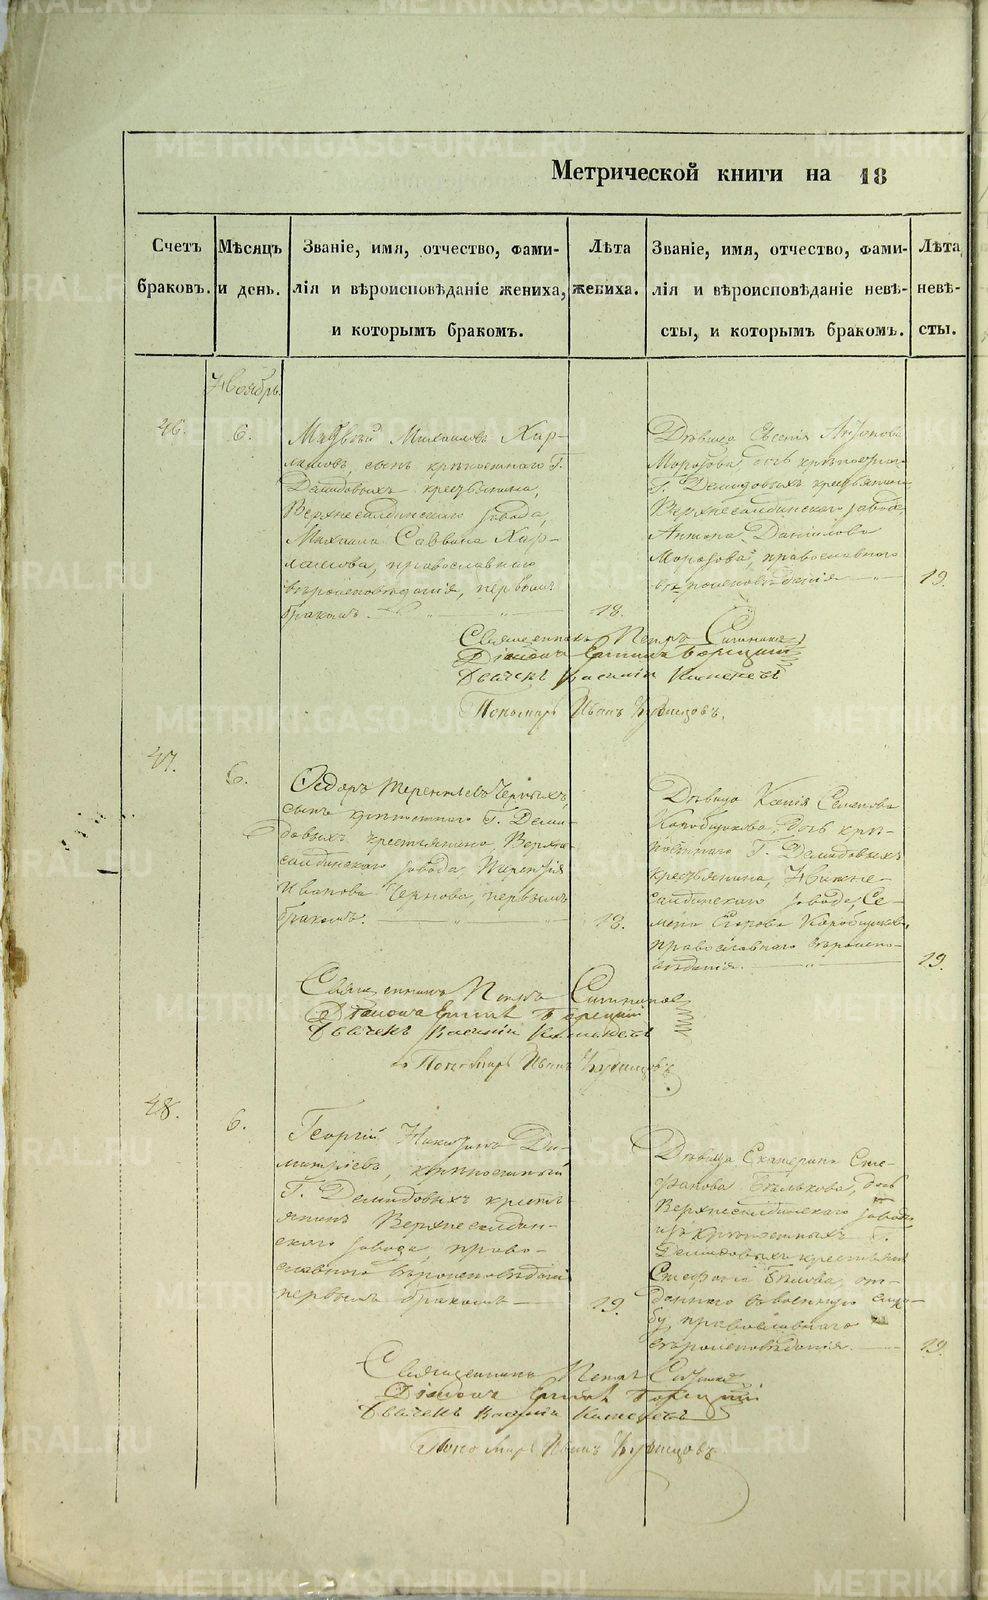 Метрической книги на 18
Счетъ браковъ.
Мѣсяцъ и день.
Званіе, имя, отчество, фами-
лія и вѣроисповѣданіе жениха,
и которымъ бракомъ.
Лѣта жениха.
Званіе, имя, отчество, фами-
лія и вѣроисповѣданіе невѣ-
сты, и которымъ бракомъ.
Лѣта невѣ-
сты.
Ноябрь
46.
6.
Михаиловъ Хар-
ламовъ, сынъ крѣпостнаго Г.
Демидовыхъ крестьянина,
Верхнесалдинскаго завода,
Михаила Саввина Хар-
ламова, православнаго
вѣроисповѣданія, первымъ
бракомъ.
18.
Дѣвица Евгенія Антонова
Морозова, дочь крѣпостнаго
Г. Демидовыхъ крестьянина
Верхнесалдинскаго завода,
Антона Данилова
Морозова, православнаго
вѣроисповѣданія
19.
Священникъ Петръ
Діаконъ
Дьячекъ Василій
Пономарь Иванъ
47.
6.
Ѳедоръ Терентьевъ Черныхъ,
сынъ крѣпостнаго Г. Деми-
довыхъ крестьянина, Верхне-
салдинскаго завода Терентія
Иванова Чернова, первымъ
бракомъ.
18.
Дѣвица Ксенія Семенова
Коробщикова, дочь крѣ-
постнаго Г. Демидовыхъ
крестьянина, Нижне-
салдинскаго завода, Се-
мена Егорова
православнаго вѣроиспо-
вѣданія.
19.
Священникъ Петръ
Діаконъ
Дьячекъ Василій
Пономарь Иванъ
48.
6.
Георгій Никитинъ Ди-
митріевъ, крѣпостный
Г. Демидовыхъ крестья-
янинъ Верхнесалдин-
скаго завода, право-
славнаго вѣроисповѣданія
первымъ бракомъ
19.
Дѣвица Екатерина Сте-
фанова Бѣлькова, дочь
Верхнесалдинскаго завода
изъ крѣпостныхъ Г.
Демидовыхъ крестьянъ
Стефана Бѣлова, от-
даннаго въ военную служ-
бу, православнаго
вѣроисповѣданія.
19.
Священникъ Петръ
Діаконъ
Дьячекъ Василій
Пономарь Иванъ
METRIKI.GASO-URAL.RU